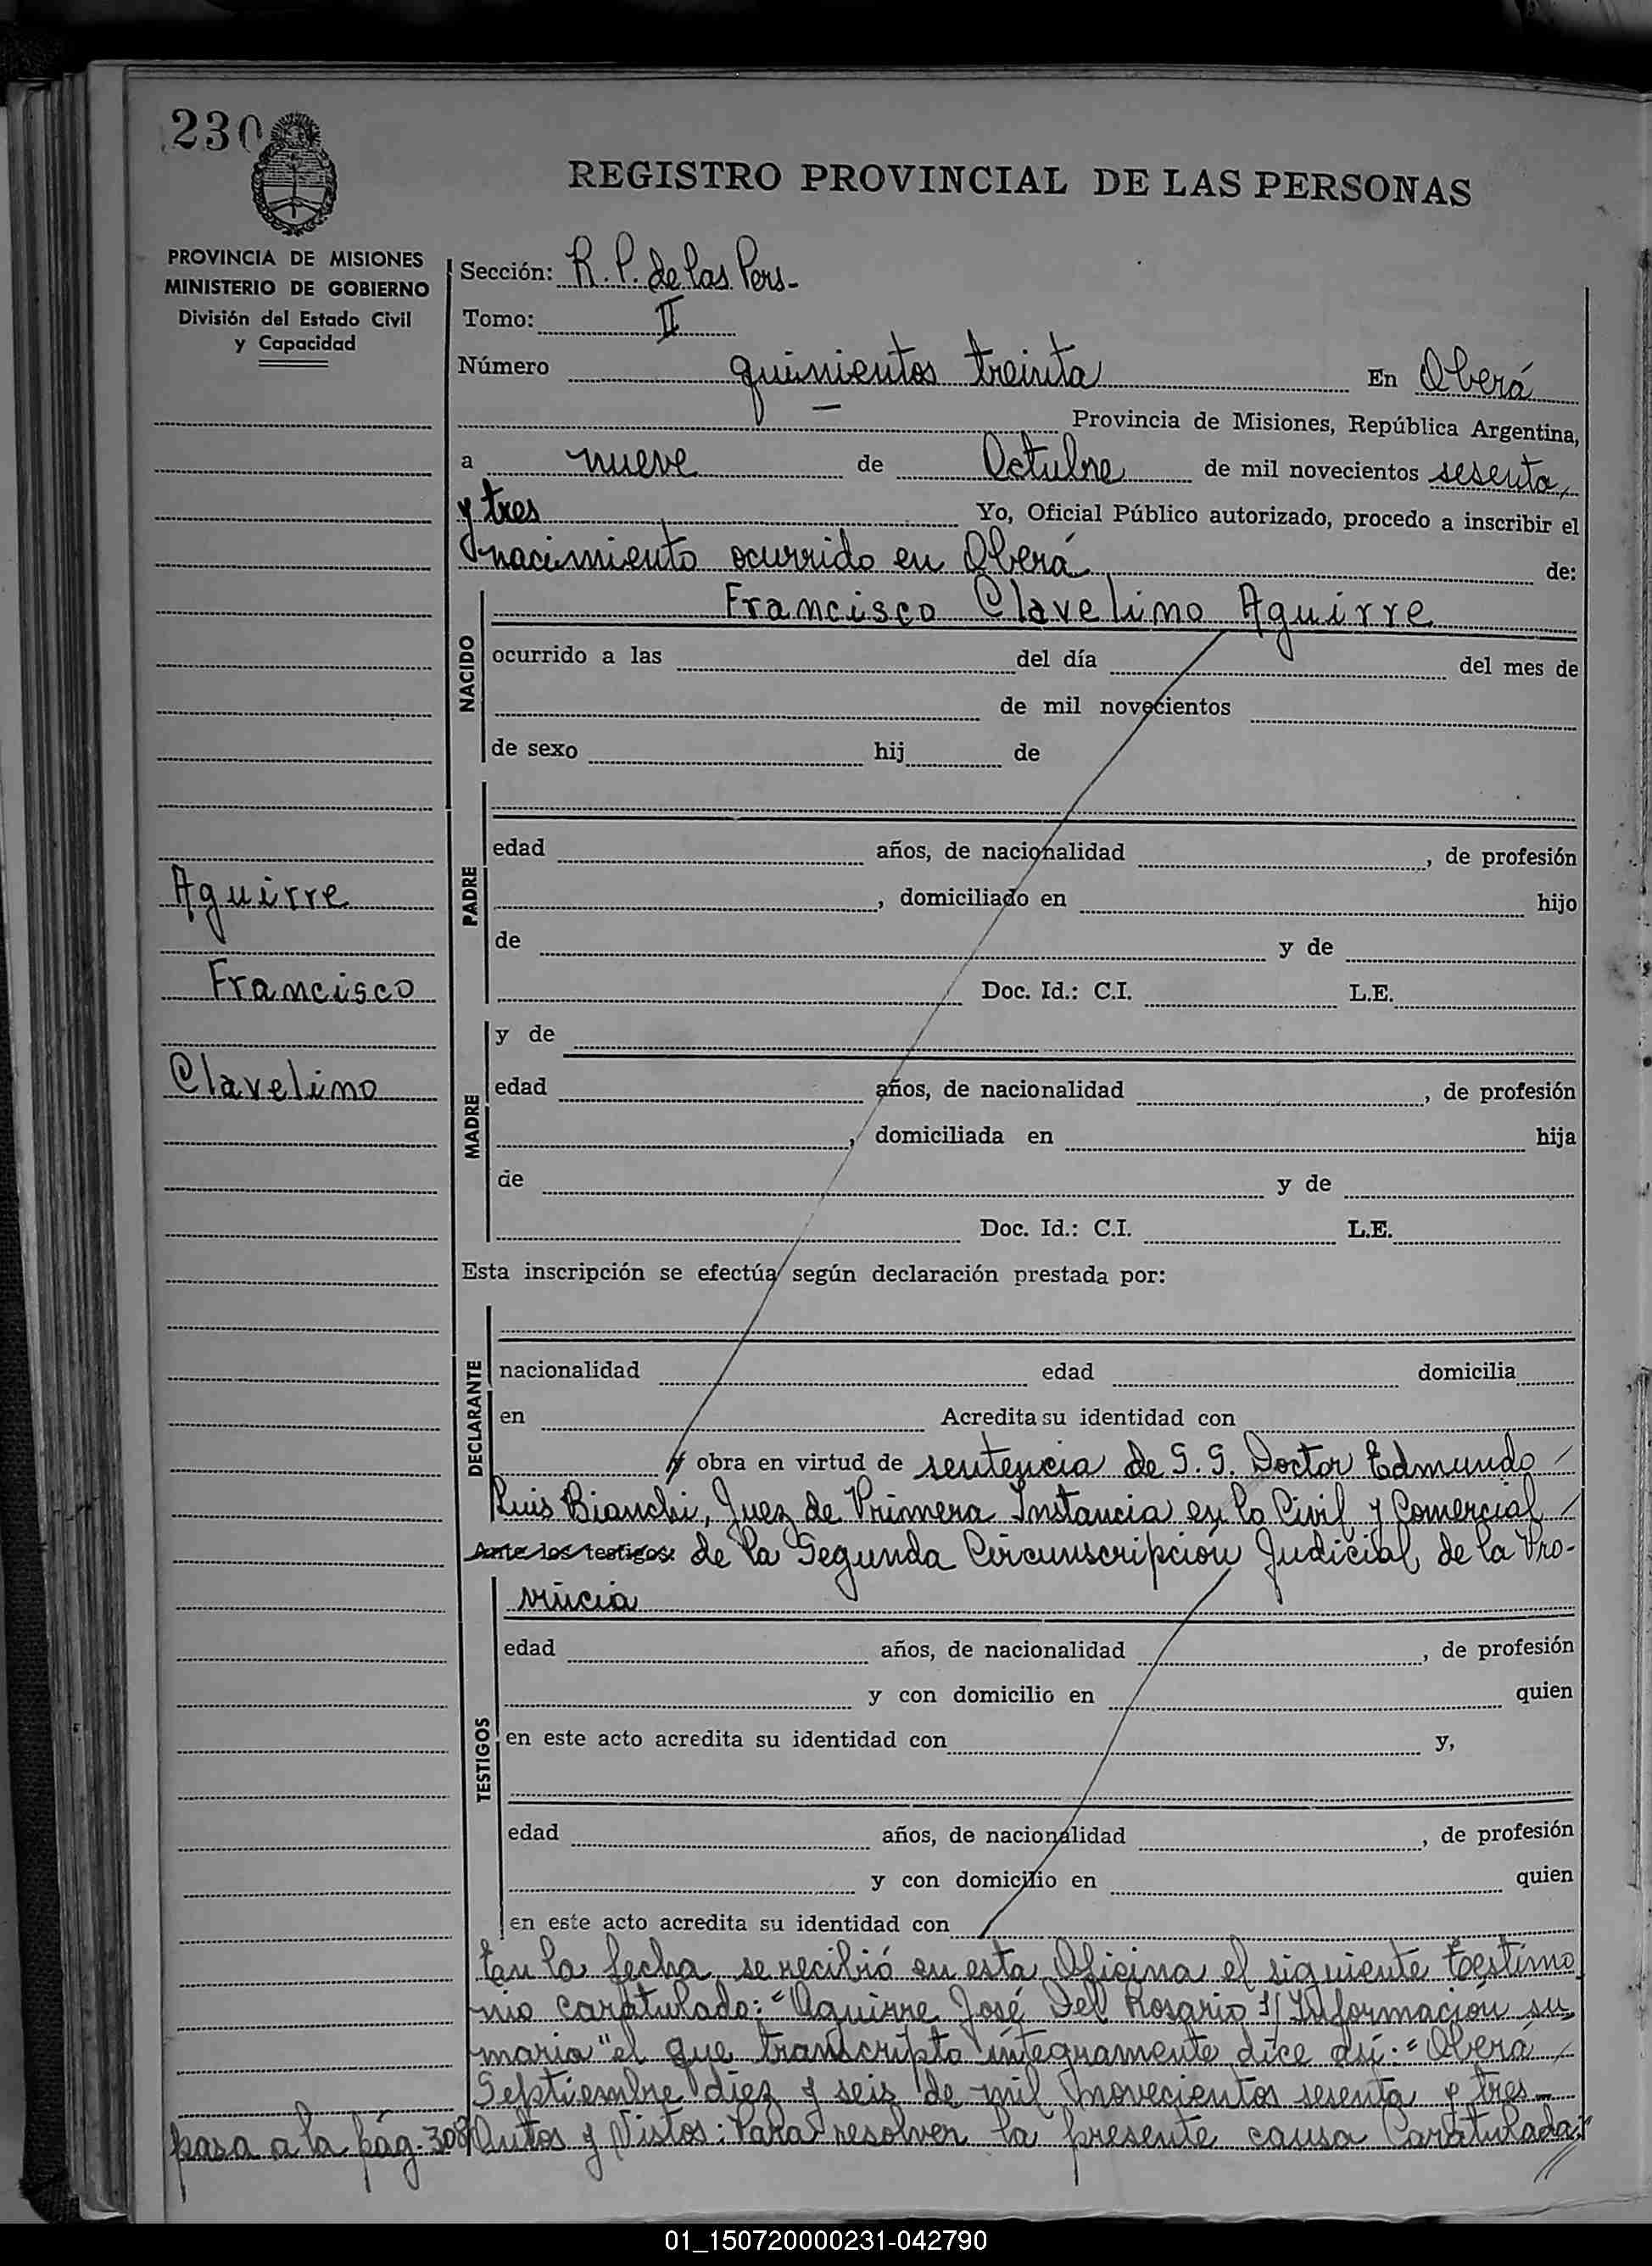 230
REGISTRO PROVINCIAL DE LAS PERSONAS
PROVINCIA DE MISIONES
MINISTERIO DE GOBIERNO
División del Estado Civil
y Capacidad
Sección: R. P. de las Pers-
Tomo: II
Número quinientos treinta En Oberá
Provincia de Misiones, República Argentina,
a nueve de Octubre de mil novecientos sesenta
y tres Yo, Oficial Público autorizado, procedo a inscribir el
nacimiento ocurrido en Oberá de:
NACIDO
Francisco Clavelino Aguirre
ocurrido a las del día del mes de
de mil novecientos
de sexo hij de
PADRE
edad años, de nacionalidad , de profesión
, domiciliado en hijo
de y de
Doc. Id.: C.I. L.E.
Aguirre
Francisco
Clavelino
MADRE
y de
edad años, de nacionalidad , de profesión
, domiciliada en hija
de y de
Doc. Id.: C.I. L.E.
Esta inscripción se efectúa según declaración prestada por:
DECLARANTE
nacionalidad edad domicilia
en Acredita su identidad con
y obra en virtud de sentencia de S. S. Doctor Edmundo
Luis Bianchi, Juez de Primera Instancia en lo Civil y Comercial
Ante los testigos: de la Segunda Circunscripción Judicial de la Pro-
vincia
TESTIGOS
edad años, de nacionalidad , de profesión
y con domicilio en quien
en este acto acredita su identidad con y,
edad años, de nacionalidad , de profesión
y con domicilio en quien
en este acto acredita su identidad con
En la fecha se recibió en esta Oficina el siguiente testimo
nio caratulado: "Aguirre José Del Rosario s/ Información su
maria" el que transcripto íntegramente dice así: "Oberá
Septiembre diez y seis de mil novecientos sesenta y tres
pasa a la pág. 308 Autos y Vistos: Para resolver la presente causa Caratulada:
01_150720000231-042790